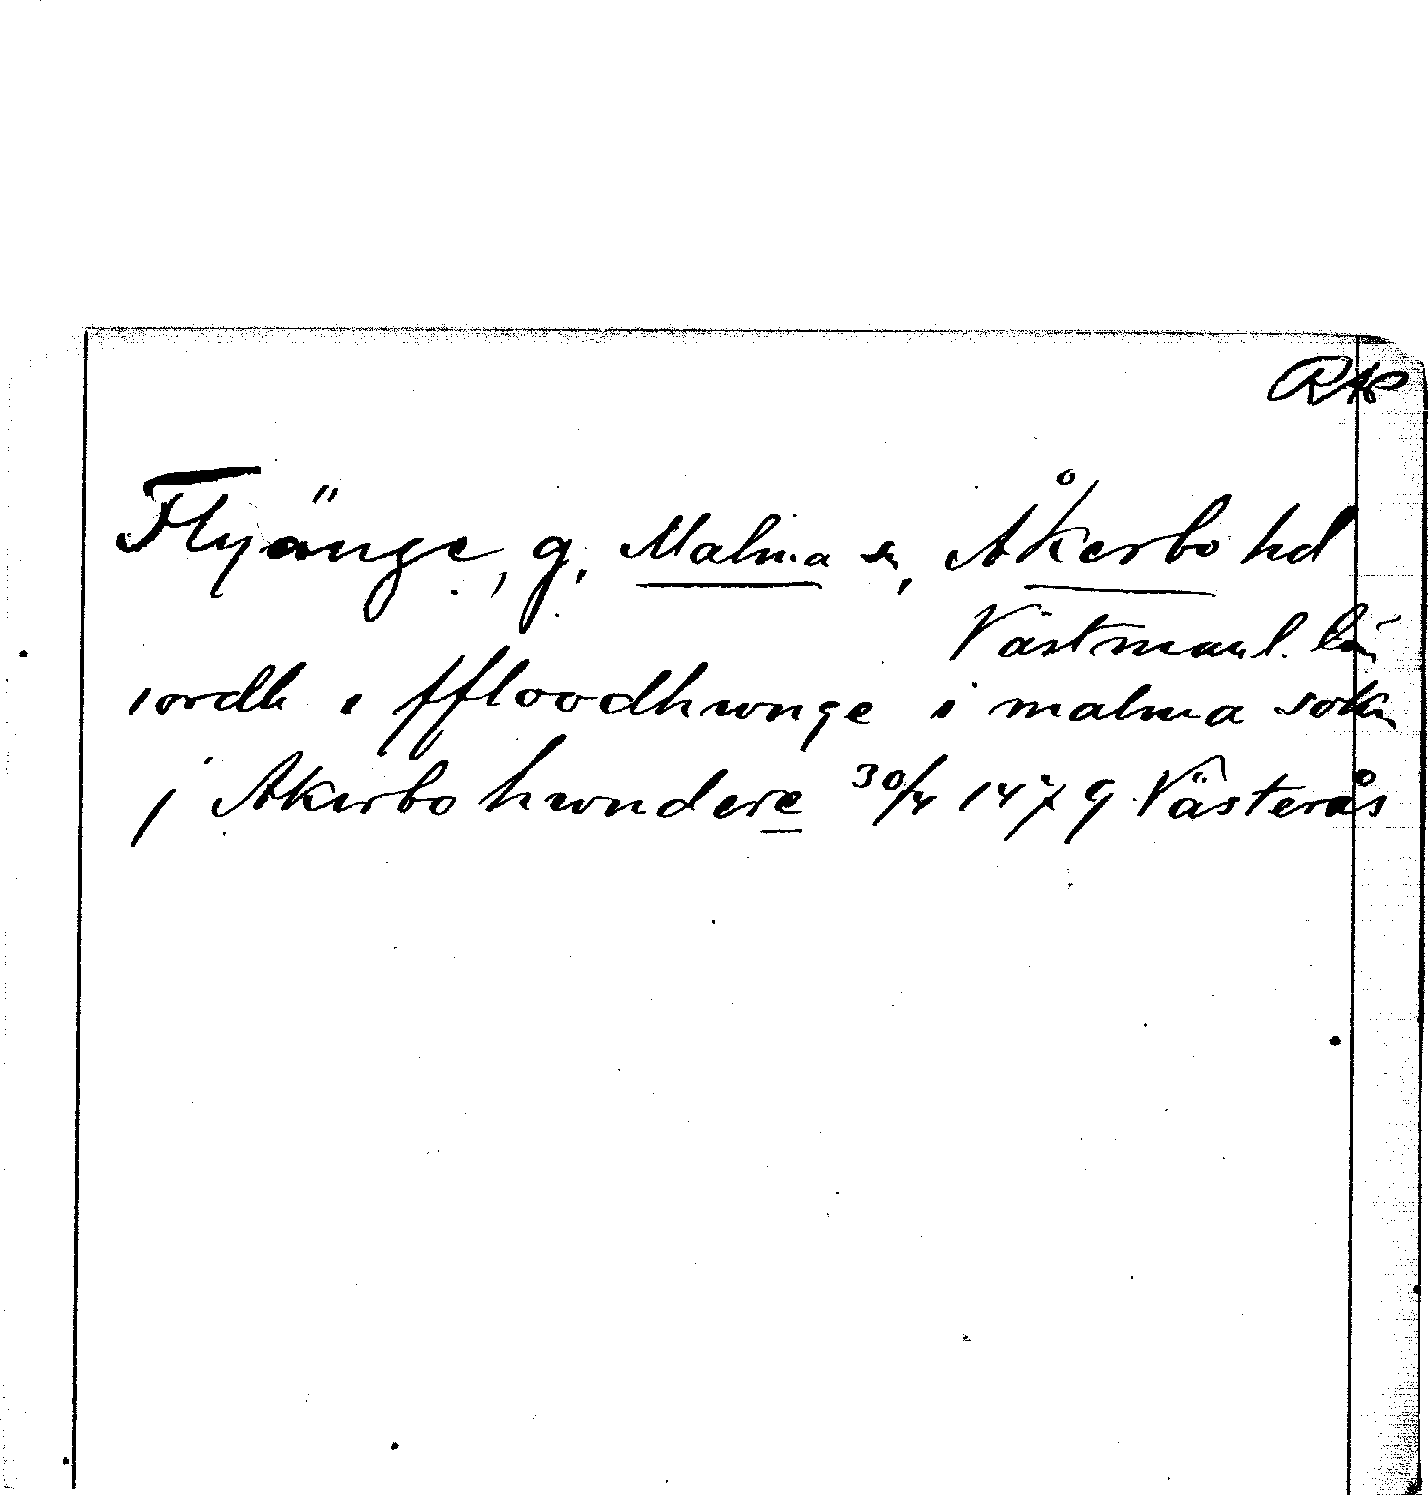 RAP
Flyänge, g, Malma sn, Åkerbo hd
Västmanl. län
iordh i ffloodhwnge i malma sokn
j Akerbo hwndere 30/4 1479 Västerås